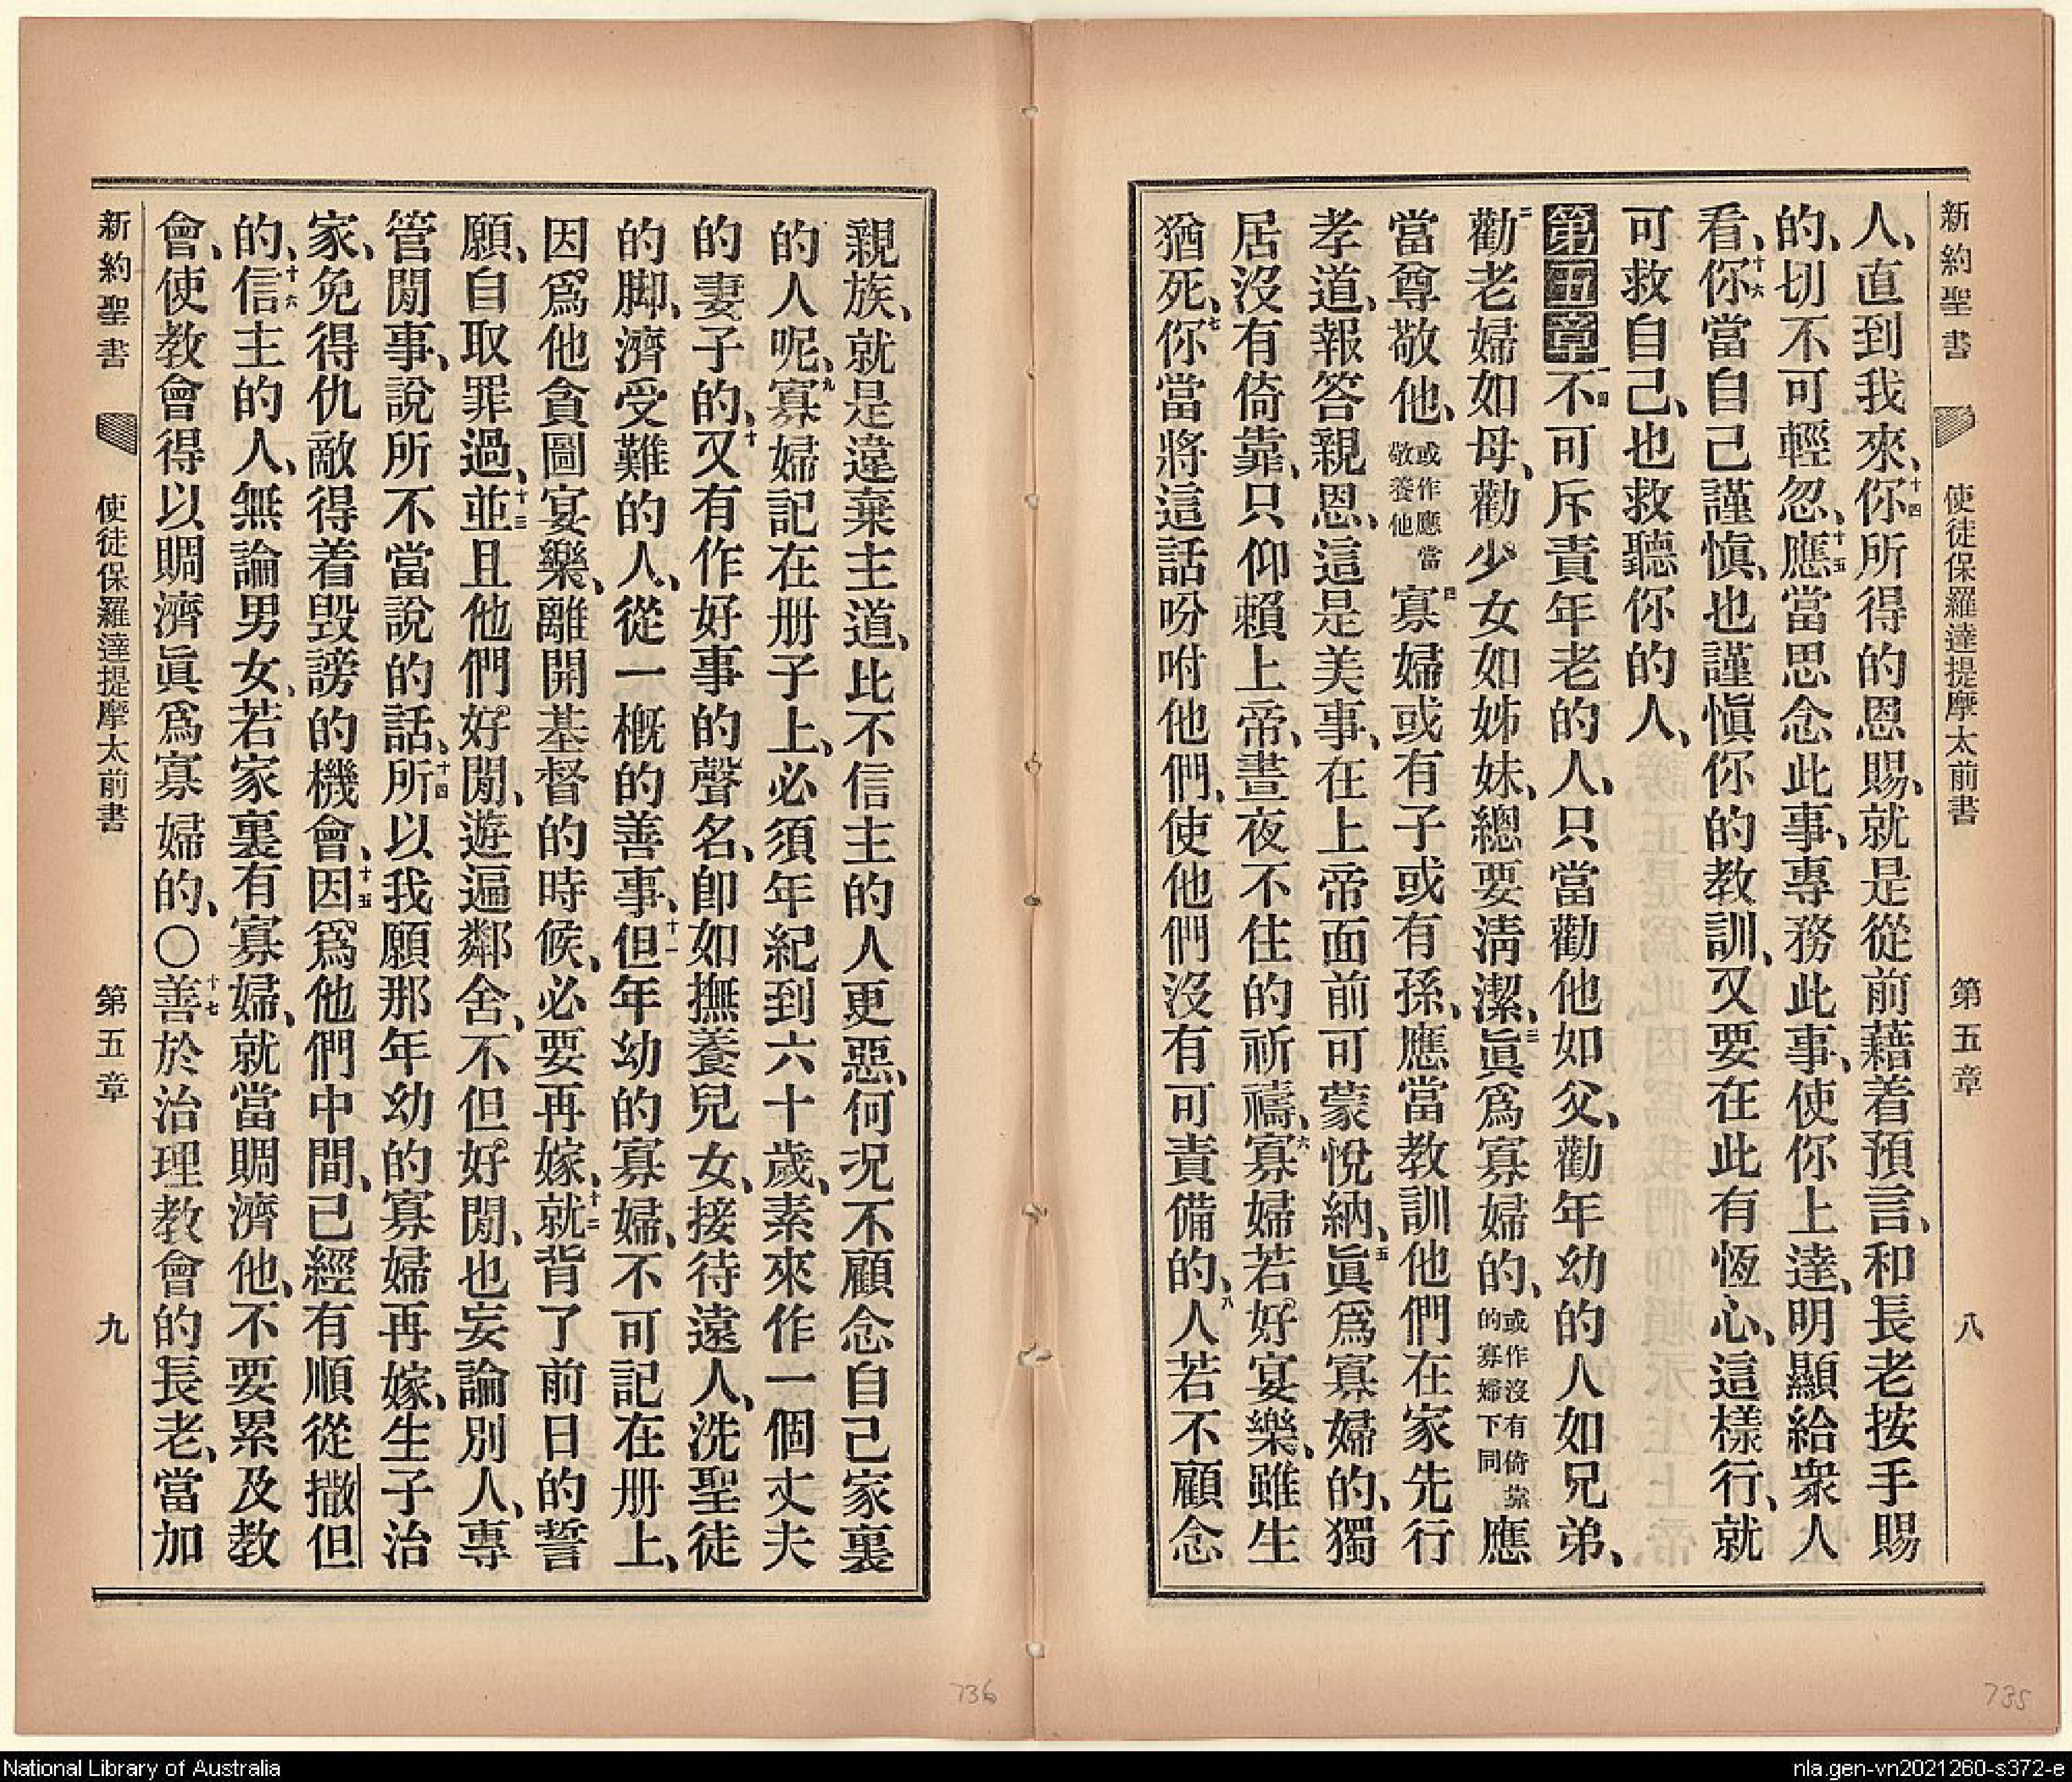 新約聖書 使徒保羅達提摩太前書 第五章 八
人、直到我來、十四你所得的恩賜、就是從前藉着預言、和長老按手賜
的、切不可輕忽、十五應當思念此事、專務此事、使你上達、明顯給衆人
看、十六你當自己謹愼、也謹愼你的教訓、又要在此有恆心、這樣行、就
可救自己、也救聽你的人、
第五章 一不可斥責年老的人、只當勸他如父、勸年幼的人如兄弟、
二勸老婦如母、勸少女如姊妹、總要淸潔、三眞爲寡婦的、或作沒有倚靠的寡婦下同應
當尊敬他、或作應當敬養他四寡婦或有子或有孫、應當教訓他們在家先行
孝道、報答親恩、這是美事、在上帝面前可蒙悅納、五眞爲寡婦的、獨
居沒有倚靠、只仰賴上帝、晝夜不住的祈禱、六寡婦若好宴樂、雖生
猶死、七你當將這話吩咐他們、使他們沒有可責備的、八人若不顧念
親族、就是違棄主道、比不信主的人更惡、何况不顧念自己家裏
的人呢、九寡婦記在册子上、必須年紀到六十歲、素來作一個丈夫
的妻子的、十又有作好事的聲名、卽如撫養兒女、接待遠人、洗聖徒
的脚、濟受難的人、從一槪的善事、十一但年幼的寡婦、不可記在册上、
因爲他貪圖宴樂、離開基督的時候、必要再嫁、十二就背了前日的誓
願、自取罪過、十三並且他們好閒、遊遍鄰舍、不但好閒、也妄論別人、專
管閒事、說所不當說的話、十四所以我願那年幼的寡婦再嫁、生子治
家、免得仇敵得着毀謗的機會、十五因爲他們中間、已經有順從撒但
的、十六信主的人、無論男女、若家裏有寡婦、就當賙濟他、不要累及教
會、使教會得以賙濟眞爲寡婦的、〇十七善於治理教會的長老、當加
新約聖書 使徒保羅達提摩太前書 第五章 九
736
735
National Library of Australia
nla.gen-vn2021260-s372-e